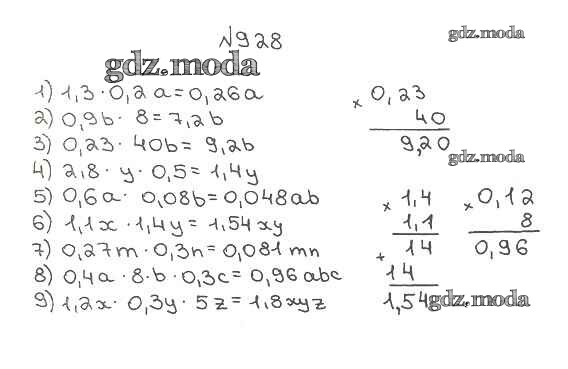 №928
gdz.moda
gdz.moda
1) 1,3 · 0,2a = 0,26a
2) 0,9b · 8 = 7,2b
3) 0,23 · 40b = 9,2b
4) 2,8 · y · 0,5 = 1,4y
5) 0,6a · 0,08b = 0,048ab
6) 1,1x · 1,4y = 1,54xy
7) 0,27m · 0,3n = 0,081mn
8) 0,4a · 8 · b · 0,3c = 0,96abc
9) 1,2x · 0,3y · 5z = 1,8xyz
× 0,23
40
9,20
gdz.moda
× 1,4
1,1
14
+
14
1,54
× 0,12
8
0,96
gdz.moda